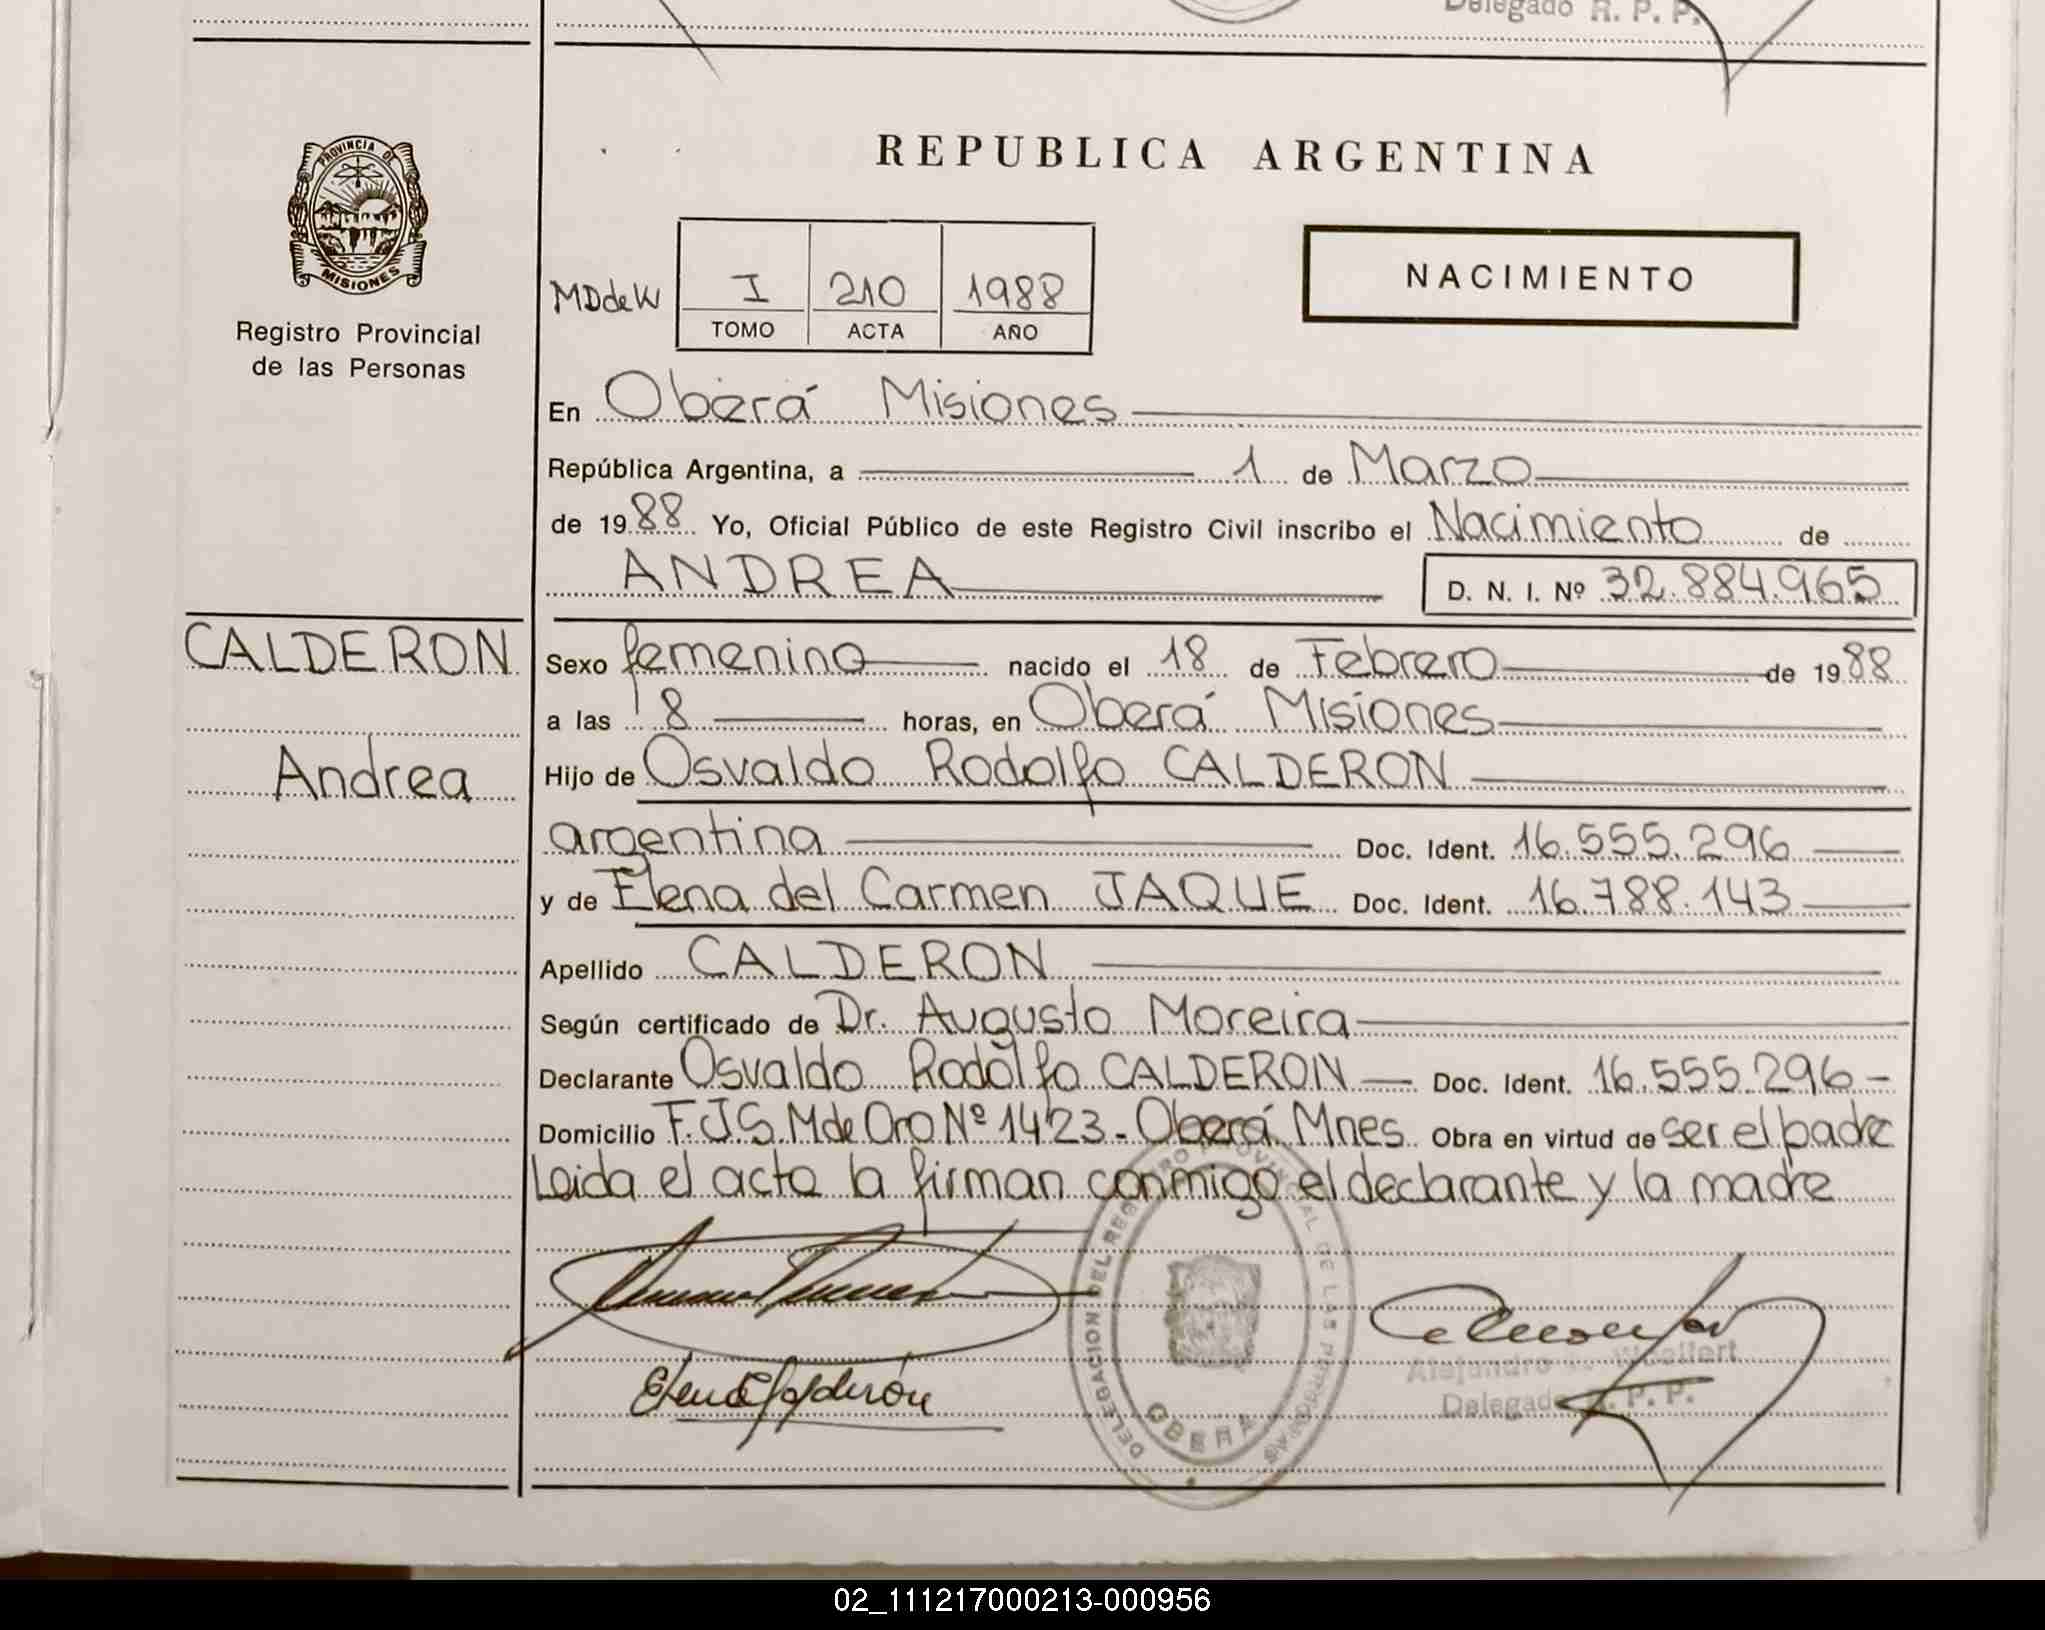 Delegado R. P. P.
PROVINCIA DE
MISIONES
Registro Provincial
de las Personas
REPUBLICA ARGENTINA
NACIMIENTO
MDdeW I 210 1988
TOMO ACTA AÑO
En Oberá Misiones
República Argentina, a 1 de Marzo
de 1988 Yo, Oficial Público de este Registro Civil inscribo el Nacimiento de
ANDREA D. N. I. Nº 32.884.965
CALDERON
Andrea
Sexo femenino nacido el 18 de Febrero de 1988
a las 8 horas, en Oberá Misiones
Hijo de Osvaldo Rodolfo CALDERON
argentina Doc. Ident. 16.555.296
y de Elena del Carmen JAQUE Doc. Ident. 16.788.143
Apellido CALDERON
Según certificado de Dr. Augusto Moreira
Declarante Osvaldo Rodolfo CALDERON Doc. Ident. 16.555.296
Domicilio F.J.S.M de Oro Nº 1423 - Oberá Mnes. Obra en virtud de ser el padre
Leida el acta la firman conmigo el declarante y la madre
DELEGACION DEL REGISTRO PROVINCIAL DE LAS PERSONAS
OBERA
Elena Calderón
Alejandro Woelfert
Delegado R. P. P.
02_111217000213-000956